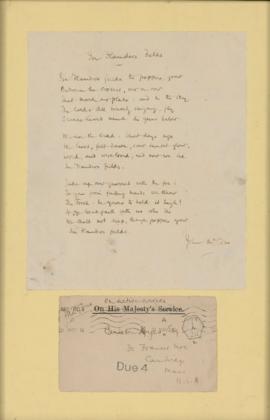 In Flanders Fields
In Flanders fields the poppies grow
Between the crosses, row on row
That mark our place: and in the sky
The larks still bravely singing, fly
Scarce heard amid the guns below.
We are the Dead. Short days ago
We lived, felt dawn, saw sunset glow,
Loved, and were loved, and now we lie
In Flanders fields.
Take up our quarrel with the foe:
To you from failing hands we throw
The Torch: be yours to hold it high!
If ye break faith with us who die
We shall not sleep, though poppies grow
In Flanders fields.
John McCrae
On Active Service
On His Majesty's Service.
Cambridge
Mass
U.S.A
Due 4